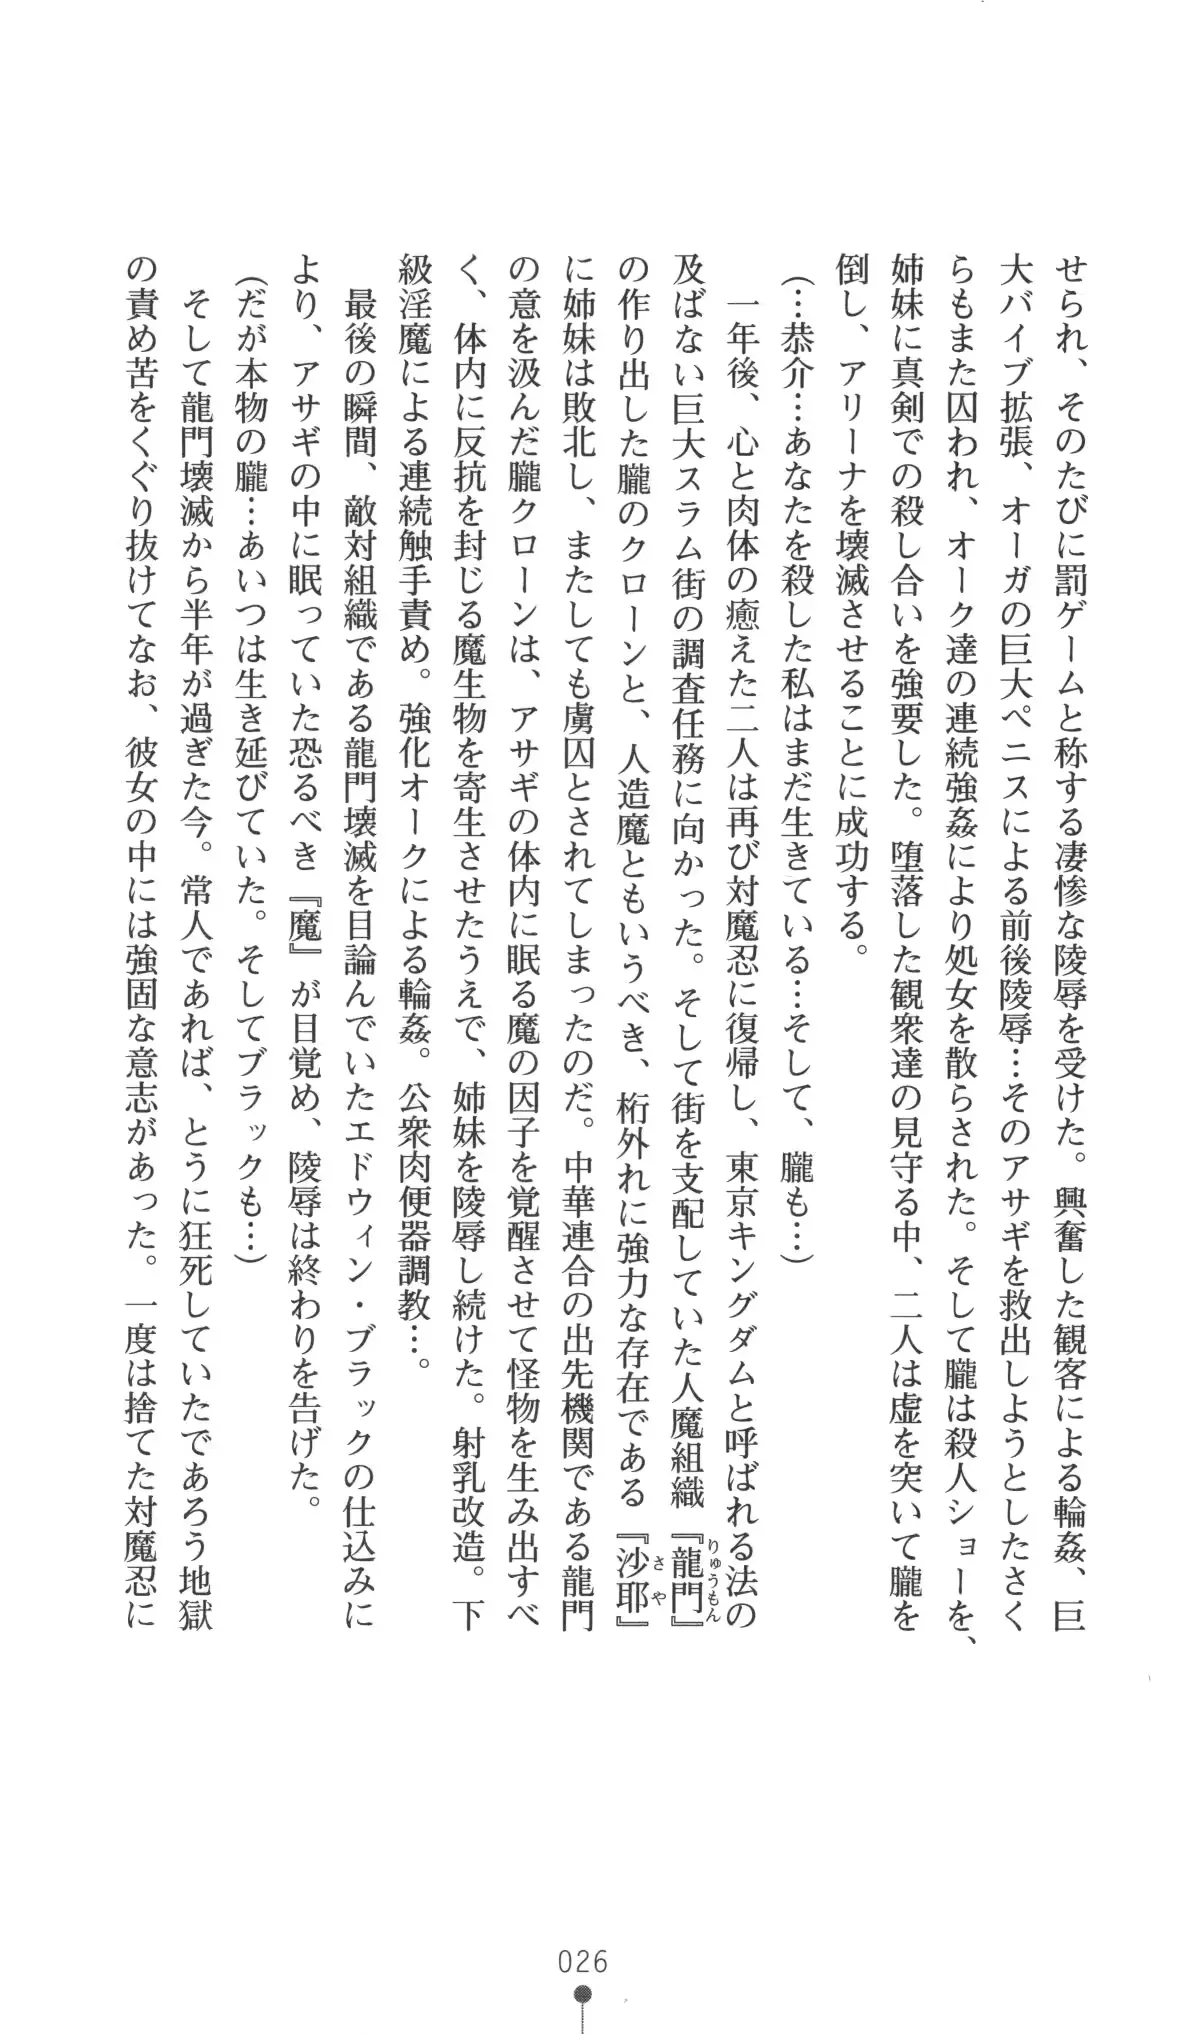 せられ、そのたびに罰ゲームと称する凄惨な陵辱を受けた。興奮した観客による輪姦、巨
大バイブ拡張、オーガの巨大ペニスによる前後陵辱…そのアサギを救出しようとしたさく
らもまた囚われ、オーク達の連続強姦により処女を散らされた。そして朧は殺人ショーを、
姉妹に真剣での殺し合いを強要した。堕落した観衆達の見守る中、二人は虚を突いて朧を
倒し、アリーナを壊滅させることに成功する。
（…恭介…あなたを殺した私はまだ生きている…そして、朧も…）
　一年後、心と肉体の癒えた二人は再び対魔忍に復帰し、東京キングダムと呼ばれる法の
及ばない巨大スラム街の調査任務に向かった。そして街を支配していた人魔組織『龍門』りゅうもん
の作り出した朧のクローンと、人造魔ともいうべき、桁外れに強力な存在である『沙耶』さや
に姉妹は敗北し、またしても虜囚とされてしまったのだ。中華連合の出先機関である龍門
の意を汲んだ朧クローンは、アサギの体内に眠る魔の因子を覚醒させて怪物を生み出すべ
く、体内に反抗を封じる魔生物を寄生させたうえで、姉妹を陵辱し続けた。射乳改造。下
級淫魔による連続触手責め。強化オークによる輪姦。公衆肉便器調教…。
　最後の瞬間、敵対組織である龍門壊滅を目論んでいたエドウィン・ブラックの仕込みに
より、アサギの中に眠っていた恐るべき『魔』が目覚め、陵辱は終わりを告げた。
（だが本物の朧…あいつは生き延びていた。そしてブラックも…）
　そして龍門壊滅から半年が過ぎた今。常人であれば、とうに狂死していたであろう地獄
の責め苦をくぐり抜けてなお、彼女の中には強固な意志があった。一度は捨てた対魔忍に
026